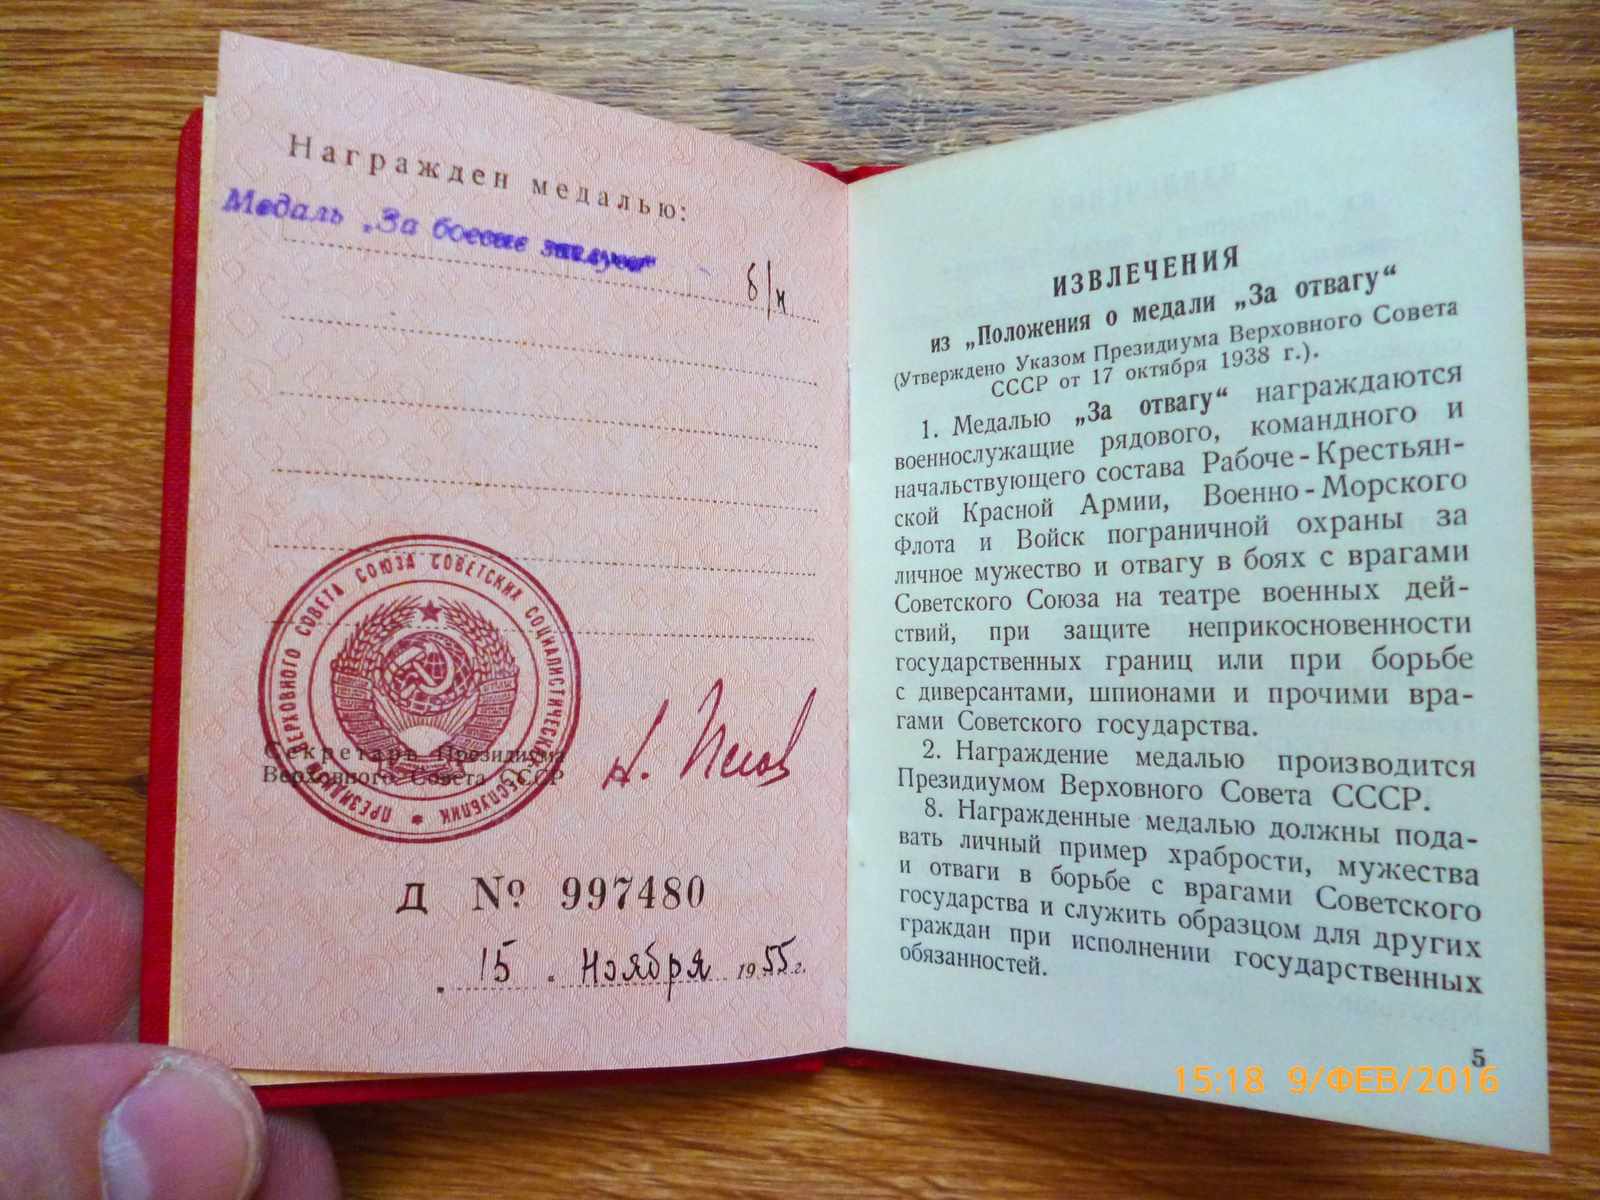 Награжден медалью:
Медаль „За боевые заслуги“
б/н
ПРЕЗИДИУМ ВЕРХОВНОГО СОВЕТА СОЮЗА СОВЕТСКИХ СОЦИАЛИСТИЧЕСКИХ РЕСПУБЛИК
Секретарь Президиума
Верховного Совета СССР
Д № 997480
„15“ Ноября 1955 г.
ИЗВЛЕЧЕНИЯ
из „Положения о медали „За отвагу“
(Утверждено Указом Президиума Верховного Совета
СССР от 17 октября 1938 г.).
1. Медалью „За отвагу“ награждаются
военнослужащие рядового, командного и
начальствующего состава Рабоче-Крестьян-
ской Красной Армии, Военно-Морского
Флота и Войск пограничной охраны за
личное мужество и отвагу в боях с врагами
Советского Союза на театре военных дей-
ствий, при защите неприкосновенности
государственных границ или при борьбе
с диверсантами, шпионами и прочими вра-
гами Советского государства.
2. Награждение медалью производится
Президиумом Верховного Совета СССР.
8. Награжденные медалью должны пода-
вать личный пример храбрости, мужества
и отваги в борьбе с врагами Советского
государства и служить образцом для других
граждан при исполнении государственных
обязанностей.
5
15:18 9/ФЕВ/2016